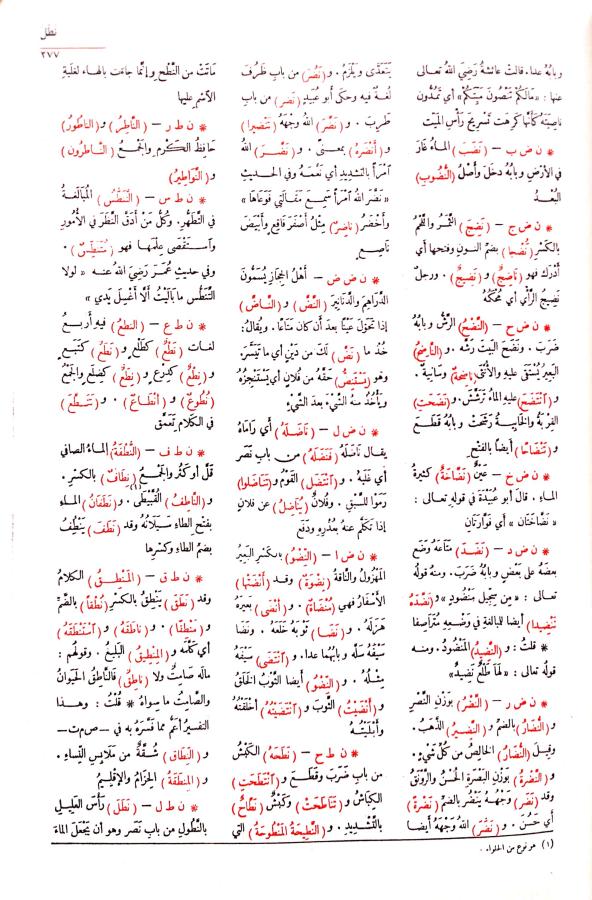 نطل
٢٧٧
وبابُهُ عدا. قالتْ عائشةُ رَضِيَ اللهُ تعـالى
عنها: «مالَكُمْ تَنْصُونَ مَيِّتَكُمْ» أي تَمُدُّون
ناصِيَتَهُ كأنَّها كَرِهَت تَسْريحَ رَأْسِ المَيِّت
* ن ض ب – (نَضَبَ) الماءُ غَارَ
في الأرْضِ وبابُهُ دخلَ وأصْلُ (النُّضُوبِ)
البُعْـدُ
* ن ض ج – (نَضِجَ) الثَّمَرُ واللَّحْمُ
بالكَسْرِ (نُضْجا) بضمّ النـون وفتحها أي
أَدْرَك فهو (ناضِجٌ) و (نَضِيجٌ) . ورجلٌ
نَضِيجُ الرَّأْيِ أي مُحْكَمُهُ
* ن ض ح – (النَّضْحُ) الرَّشُّ وبابُهُ
ضَرَبَ . ونَضَحَ البَيْتَ رَشَّه . و (النَّاضِحُ)
البَعِيرُ يُسْتَقَى عليهِ والأُنثَى (ناضِحةٌ) وسَانِيةٌ .
و (ٱنْتَضَحَ) عليهِ الماءُ تَرَشَّشَ. و(نَضَحَت)
القِرْبةُ والخَابِيـةُ رَشَحَتْ وبابُهُ قَطَـعَ
و (تَنْضَاحًا) أيضًا بالفتْحِ
* ن ض خ – عَيْنٌ (نَضَّاخَةٌ) كثيرةُ
الماءِ . قال أبو عُبَيْدَةَ في قولهِ تعالى :
« نَضَّاخَتَانِ » أي فَوَّارَتَانِ
* ن ض د – (نَضَـدَ) مَتَاعَهُ وَضَعَ
بعضَهُ على بَعْضٍ وبابُهُ ضَرَبَ . ومنهُ قولُهُ
تعالى : « مِن سِجِّيلٍ مَنْضُودٍ » و(نَضَّدَهُ
تَنْضِيدا) أيضا للمبالغةِ في وَضْعِـهِ مُتَرَاصِفا
* قلتُ : و (النَّضِيدُ) المَنْضُودُ . ومنـه
قولُهُ تعالى : « لها طَلْعٌ نَضِيدٌ »
* ن ض ر – (النَّضْرُ) بوَزْنِ النَّصْرِ
و (النُّضَارُ) بالضمِّ و (النَّضِـيرُ) الذَّهَبُ .
وقيـلَ (النُّضَارُ) الخالِصُ من كُلِّ شيءٍ .
و (النَّضْرةُ) بوَزْنِ البَصْرَةِ الحُسْنُ والرَّوْنَقُ
وقد (نَضَر) وجْهُـهُ يَنْضُر بالضمِّ (نَضْرةً)
أي حَسُنَ . و (نَضَّرَ) اللهُ وَجْهَهُ أيضا
يَتَعَدَّى ويَلْزَمُ . و (نَضُرَ) من باب ظَرُفَ
لُغـةٌ فيه وحكَى أبو عُبَيْدٍ (نَضِرَ) من بابِ
طَرِبَ . و (نَضَّرَ) اللهُ وَجْهَهُ (تنْضيرا)
و (أَنْضَرهُ) بمعنًى . و (نَضَّـرَ) اللهُ
ٱمْرَأً بالتشديدِ أي نَعَّمَهُ وفي الحديث
« نَضَّرَ اللهُ ٱمْرَأً سَمِـعَ مقَالَتي فَوَعَاهَا »
وأَخْضَرُ (ناضِرٌ) مِثْلُ أصفَرَ فاقِعٍ وأبيَضَ
ناصِعٍ
* ن ض ض – أَهْلُ الحِجَازِ يُسَمُّونَ
الدَّرَاهِمَ والدَّنَانِيرَ (النَّضَّ) و (النَّاضَّ)
إذا تَحَوَّلَ عَيْنًا بعدَ أن كان مَتَاعًا . ويُقالُ:
خُذْ ما (نَضَّ) لكَ من دَيْنٍ أي ما تَيَسَّرَ.
وهو (يَسْتَنِضُّ) حَقَّهُ من فُلانٍ أي يَسْتَنْجِزُهُ
ويأخُذُ منهُ الشَّيْءَ بعدَ الشَّيْءِ
* ن ض ل – (نَاضَلَهُ) أي رَامَاهُ
يقال ناضَلَهُ (فَنَضَلَهُ) من باب نَصَر
أي غَلَبه . و (ٱنْتَضَلَ) القَوْمُ و(تَنَاضَلوا)
رَمَوْا للسَّبْقِ . وفُلانٌ (يُنَاضِلُ) عن فلانٍ
إذا تَكَلَّمَ عنهُ بعُذْرِهِ ودَفَع
* ن ض ا – (النِّضْوُ) بالكَسْرِ البَعِيرُ
المَهْزُولُ والنَّاقةُ (نِضْوَةٌ) وقـد (أَنْضَتْها)
الأسْفَارُ فهي (مُنْضَاةٌ) . و (أنْضَى) بعيرَهُ
هَزَلَهُ . و (نَضَـا) ثَوْبَهُ خَلَعَهُ . ونَضَا
سَيْفَهُ سَلَّهُ وبابُهما عدا. و (ٱنْتَضَى) سَيْفَهُ
مِثْـلُهُ . و (النِّضْوُ) أيضا الثَّوْبُ الخَلَقُ
و (أَنْضَيْتُ) الثَّوْبَ و (ٱنْتَضَيْتُهُ) أخْلَقْتُهُ
وأَبْلَيْتُـهُ
* ن ط ح – (نَطَحَهُ) الكَبْشُ
من بابِ ضَرَبَ وقَطَـعَ و (ٱنْتَطَحَتِ)
الكِبَاشُ و (تَنَاطَحَتْ) وكَبْشٌ (نَطَّاحٌ)
بالتَّشْديدِ . و (النَّطِيحَةُ المَنْطُوحَةُ) التي
مَاتَتْ من النَّطْحِ وإنَّمـا جاءَت بالهـاءِ لغَلَبةِ
الاسمِ عليها
* ن ط ر – (النَّاطِرُ) و(النَّاطُورُ)
حَافِظُ الكَـرْمِ والجَمْـعُ (النَّـاطِرُون)
و (النَّوَاطِيرُ)
* ن ط س – (التَّنَطُّسُ) المُبَالَغَـةُ
في التَّطَهُّرِ. وكُلُّ مَن أَدَقَّ النَّظَرَ في الأُمُورِ
وٱسـتَقْصَى عِلْمَهـا فهو (مُتَنَطِّسٌ) .
وفي حديثِ عُمَـرَ رَضِيَ اللهُ عنـه « لولا
التَّنَطُّسُ مَا بَالَيْتُ أَلَّا أَغْسِلَ يَدِي »
* ن ط ع – (النطعُ) فيه أربـعُ
لغـات (نَطْعٌ) كَطَلْعٍ و (نَطَعٌ) كَتَبَـعٍ
و (نِطْعٌ) كدِرْعٍ و (نِطَعٌ) كضِلَعٍ والجَمْعُ
(نُطُوعٌ) و (أنْطَاعٌ) . و (تَنَطَّـعَ)
في الكَلامِ تَعَمَّقَ
* ن ط ف – (النُّطْفَةُ) المـاءُ الصافي
قَلَّ أوكَثُرَ والجَمْعُ (نِطَافٌ) بالكَسْرِ .
و (الناطِفُ) القُبَّيْطَى(١) . و (نَطَفَانُ) المـاءِ
بفتح الطاءِ سَيَلانُهُ وقد (نَطَفَ) يَنْطُفُ
بضمّ الطاءِ وكسْرِها
* ن ط ق – (المَنْطِـقُ) الكلامُ
وقد (نَطَقَ) يَنْطِقُ بالكَسْرِ (نُطْقاً) بالضَّمِّ
و (مَنْطِقًا) . و (ناطَقَهُ) و (ٱسْتَنْطَقَهُ)
أي كَلَّمَه و (المِنْطِيقُ) البَليغُ . وقولُهم :
مالَه صَامِتٌ ولا (ناطِقٌ) فالنَّاطِقُ الحَيَوانُ
والصَّامِتُ ما سِوَاهُ * قُلْتُ : وهـذا
التَّفْسيرُ أعَمُّ ممَّا فَسَّرَهُ به في – ص م ت –
و (النِّطَاق) شُـقَّةٌ من مَلَابِسِ النِّسَاءِ .
و (المِنْطَقَةُ) الحِزَامُ والإقْلِيم
* ن ط ل – (نَطَلَ) رَأْسَ العَليـلِ
بالنَّطُولِ من بابِ نَصَر وهو أن يَجْعَلَ الماءَ
(١) هو نوع من الحلواء .